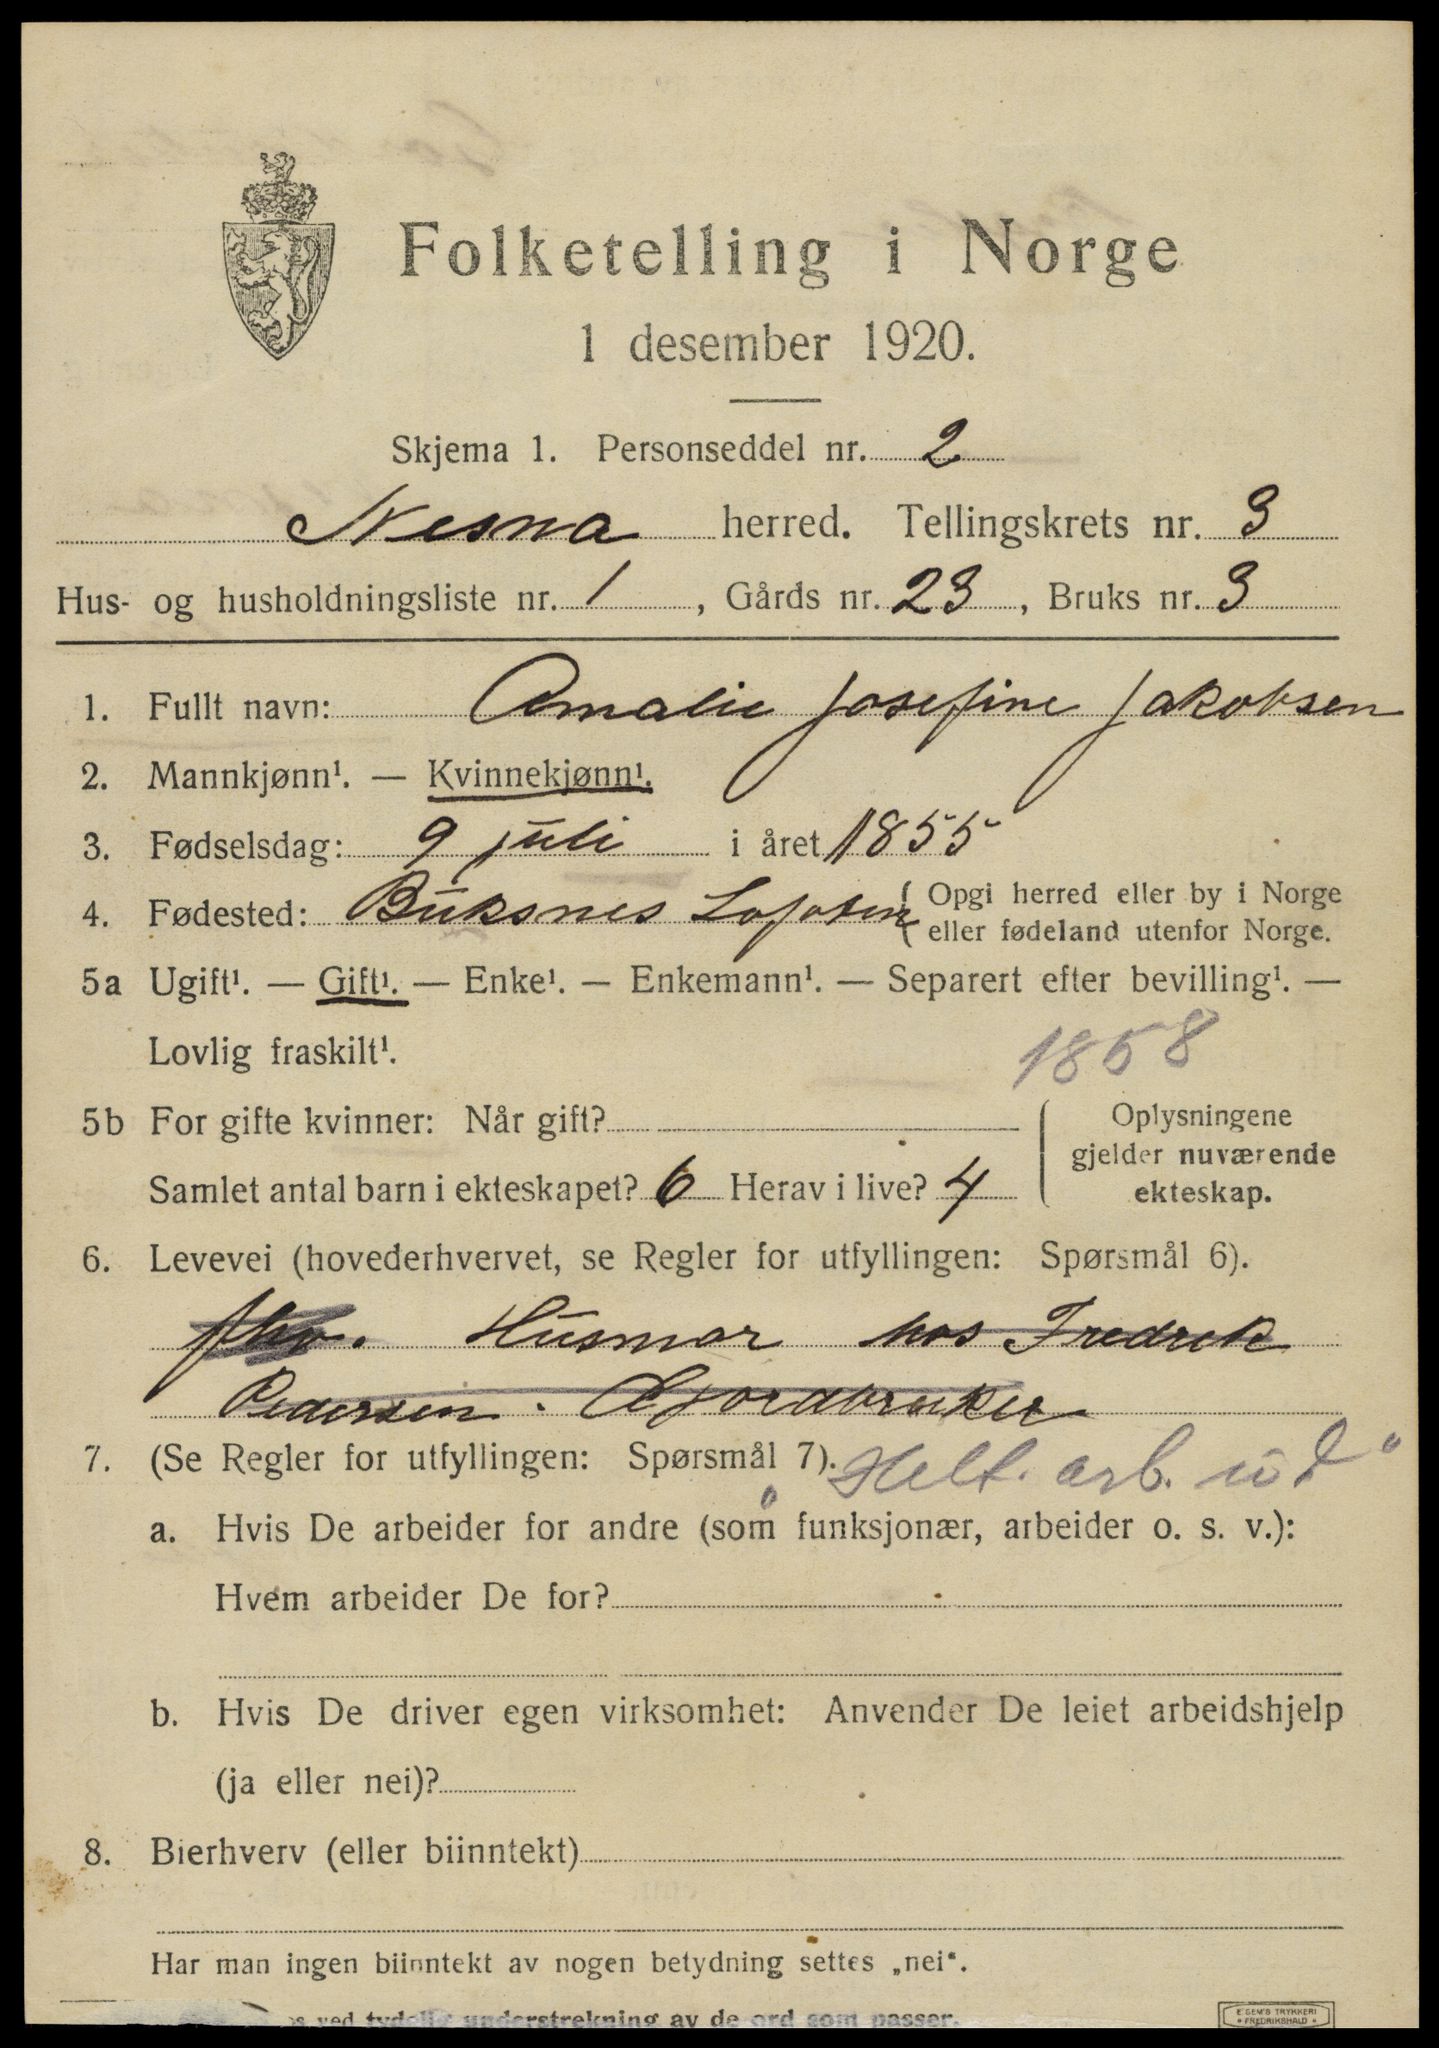 Folketelling i Norge
1 desember 1920.
Skjema 1. Personseddel nr. 2
Nesna herred. Tellingskrets nr. 3
Hus- og husholdningsliste nr. 1, Gårds nr. 23, Bruks nr. 3
1. Fullt navn: Amalie Josefine Jakobsen
2. Mannkjønn¹. — Kvinnekjønn¹.
3. Fødselsdag: 9 juli i året 1855
4. Fødested: Buksnes Lofoten { Opgi herred eller by i Norge
eller fødeland utenfor Norge.
5a Ugift¹. — Gift¹. — Enke¹. — Enkemann¹. — Separert efter bevilling¹. —
Lovlig fraskilt¹.
1858
5b For gifte kvinner: Når gift?
Samlet antal barn i ekteskapet? 6 Herav i live? 4
Oplysningene
gjelder nuværende
ekteskap.
6. Levevei (hovederhvervet, se Regler for utfyllingen: Spørsmål 6).
Husmor hos Fredrik
Pedersen. Gjordbruker
7. (Se Regler for utfyllingen: Spørsmål 7). Helt. arb.
a. Hvis De arbeider for andre (som funksjonær, arbeider o. s. v.):
Hvem arbeider De for?
b. Hvis De driver egen virksomhet: Anvender De leiet arbeidshjelp
(ja eller nei)?
8. Bierhverv (eller biinntekt)
Har man ingen biinntekt av nogen betydning settes „nei“.
ved tydelig understrekning av de ord som passer.
E. GEM'S TRYKKERI
* FREDRIKSHALD *